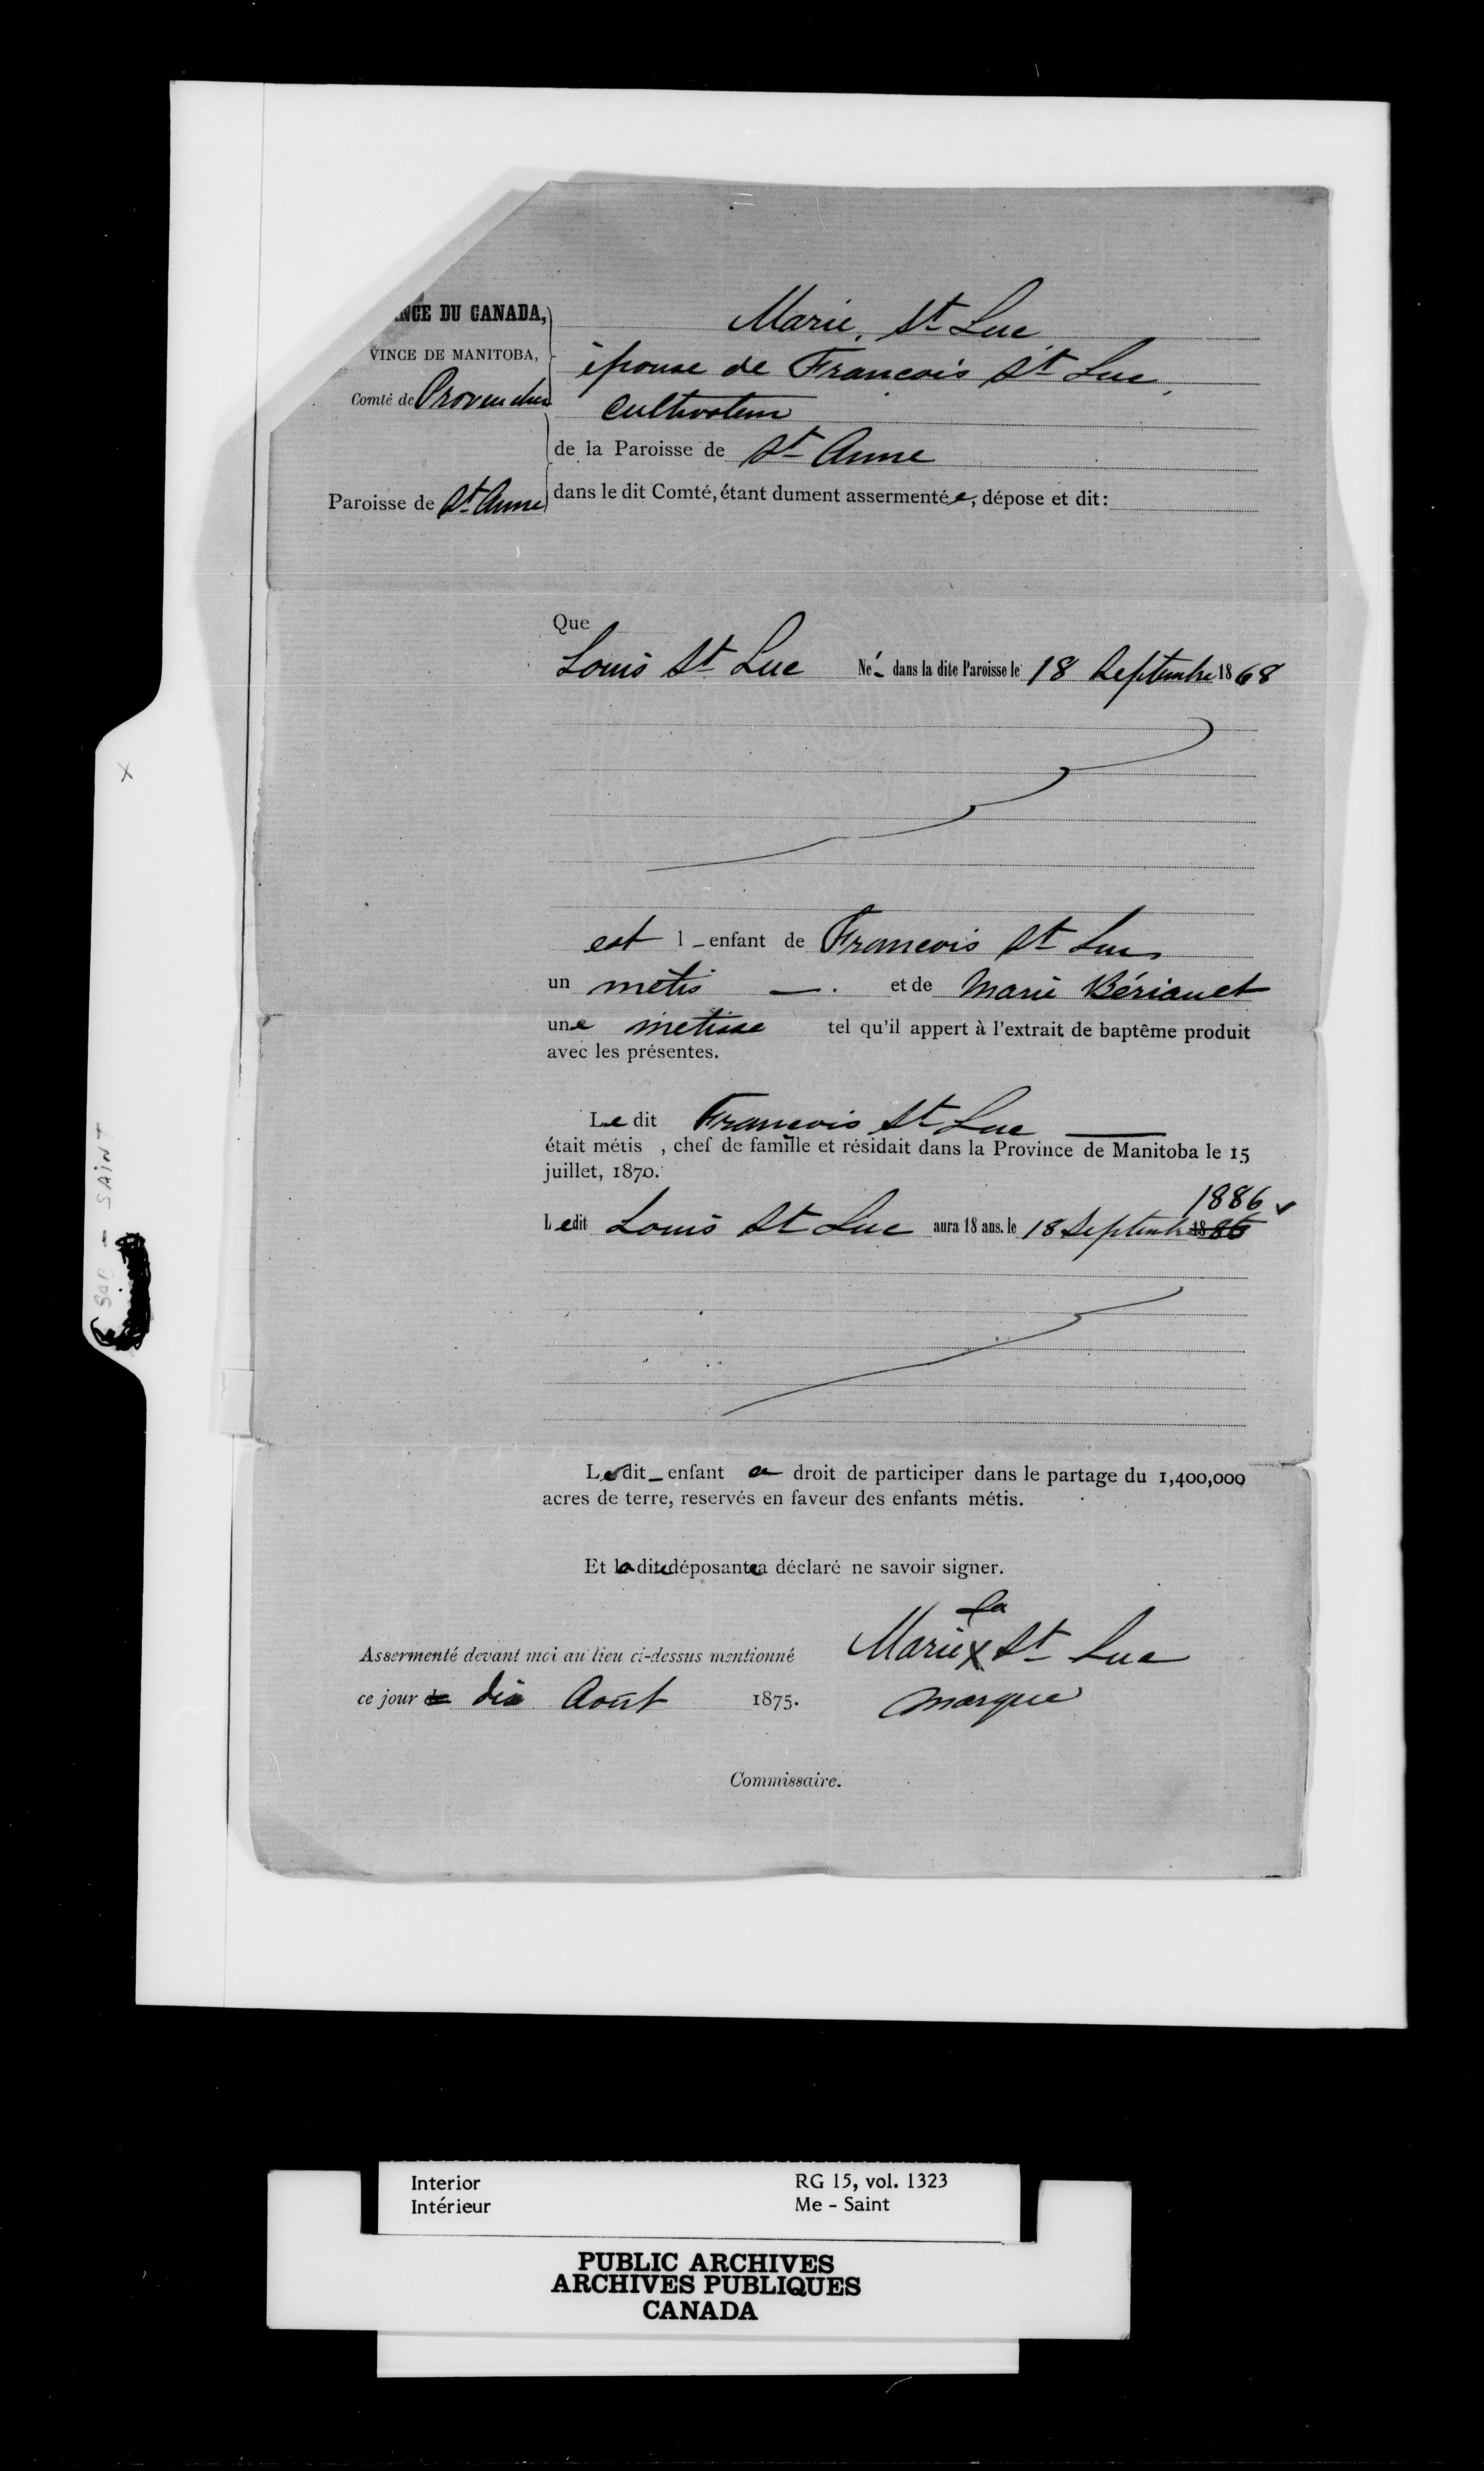 NCE DU CANADA,
VINCE DE MANITOBA,
Comté de Provencher
Paroisse de St Anne
Marie St Luc
épouse de Francois St Luc,
cultivateur
de la Paroisse de St Anne
dans le dit Comté, étant dument assermentée, dépose et dit:
Que
Louis St Luc Né - dans la dite Paroisse le 18 Septembre 1868
est l - enfant de Francois St Luc
un métis — . et de Marie Bériault
une métisse tel qu'il appert à l'extrait de baptême produit
avec les présentes.
Le dit Francois St Luc
était métis , chef de famille et résidait dans la Province de Manitoba le 15
juillet, 1870.
1886
Le dit Louis St Luc aura 18 ans. le 18 Septembre 1886
Le dit - enfant a droit de participer dans le partage du 1,400,000
acres de terre, reservés en faveur des enfants métis.
Et la dite déposante a déclaré ne savoir signer.
la
Marie X St Luc
marque
Assermenté devant moi au lieu ci-dessus mentionné
ce jour de dix Août 1875.
Commissaire.
X
SAB - SAINT
Interior RG 15, vol. 1323
Intérieur Me - Saint
PUBLIC ARCHIVES
ARCHIVES PUBLIQUES
CANADA